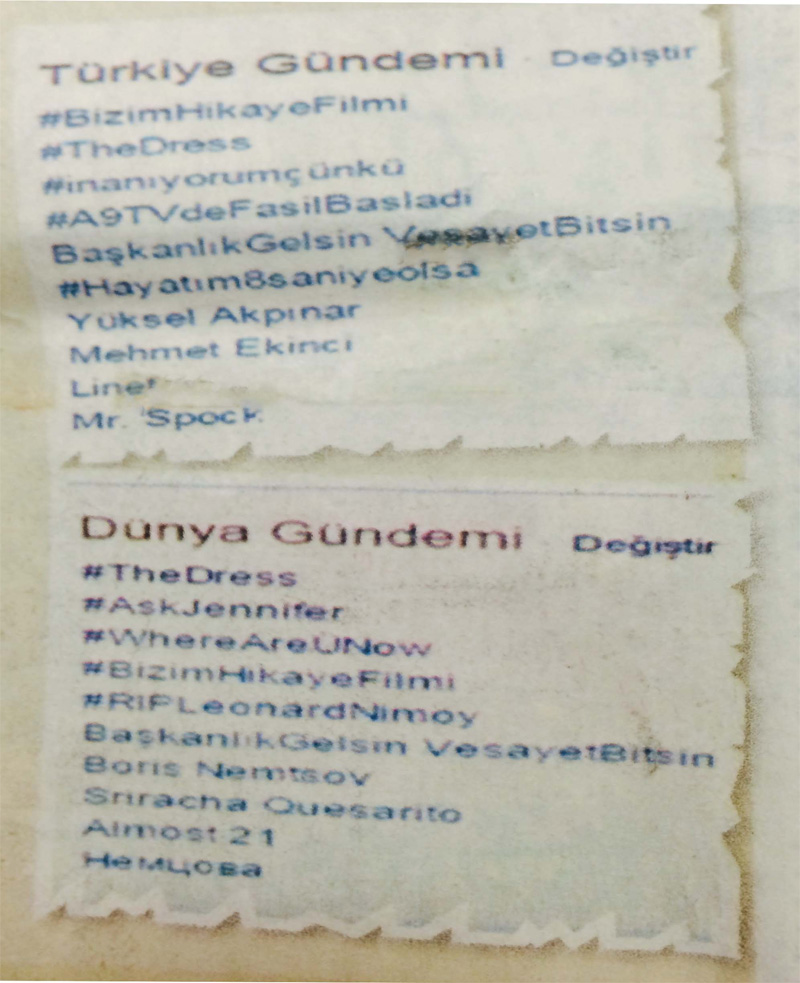 Türkiye Gündemi · Değiştir
#BizimHikayeFilmi
#TheDress
#inanıyorumçünkü
#A9TVdeFasilBasladi
BaşkanlıkGelsin VesayetBitsin
#Hayatım8saniyeolsa
Yüksel Akpınar
Mehmet Ekinci
Linet
Mr. Spock
Dünya Gündemi · Değiştir
#TheDress
#AskJennifer
#WhereAreÜNow
#BizimHikayeFilmi
#RIPLeonardNimoy
BaşkanlıkGelsin VesayetBitsin
Boris Nemtsov
Sriracha Quesarito
Almost 21
Немцова